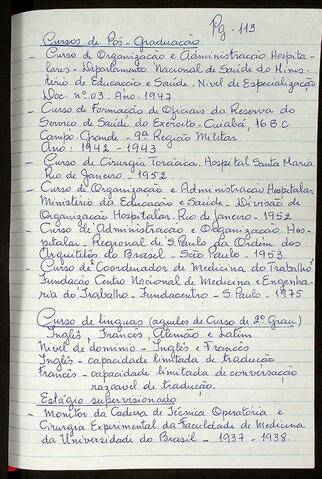 Pg. 113
Cursos de Pós-Graduação
- Curso de Organização e Administração Hospita-
lares - Departamento Nacional de Saúde do Minis-
tério de Educação e Saúde. Nível de Especialização
Doc. nº 03. Ano. 1947
- Curso de Formação de Oficiais da Reserva do
Serviço de Saúde do Exército - Cuiabá, 16 B.C
Campo Grande - 9ª Região Militar
Ano: 1942 - 1943
- Curso de Cirurgia Torácica. Hospital Santa Maria
Rio de Janeiro - 1952.
- Curso de Organização e Administração Hospitalar
Ministério da Educação e Saúde - Divisão de
Organização Hospitalar. Rio de Janeiro - 1952
- Curso de Administração e Organização Hos-
pitalar - Regional de S. Paulo da Ordem dos
Arquitetos do Brasil - São Paulo - 1953.
- Curso de "Coordenador de Medicina do Trabalho"
Fundação Centro Nacional de Medicina e Engenha-
ria do Trabalho - Fundacentro - S. Paulo - 1975
Curso de línguas (aqueles de Curso de 2º Grau)
- Inglês, Francês, Alemão e Latim
Nível de domínio - Inglês e Francês
Inglês - capacidade limitada de tradução
Francês - capacidade limitada de conversação
razoável de tradução.
Estágio supervisionado
- Monitor da Cadeira de Técnica Operatória e
Cirurgia Experimental da Faculdade de Medicina
da Universidade do Brasil - 1937 - 1938.